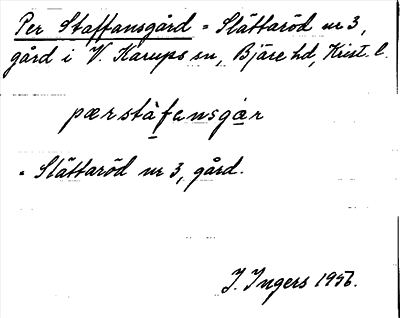 Per Staffansgård = Slättaröd nr 3,
gård i V. Karups sn, Bjäre hd, Krist. l.
pærstàfansgær
= Slättaröd nr 3, gård.
I. Ingers 1956.